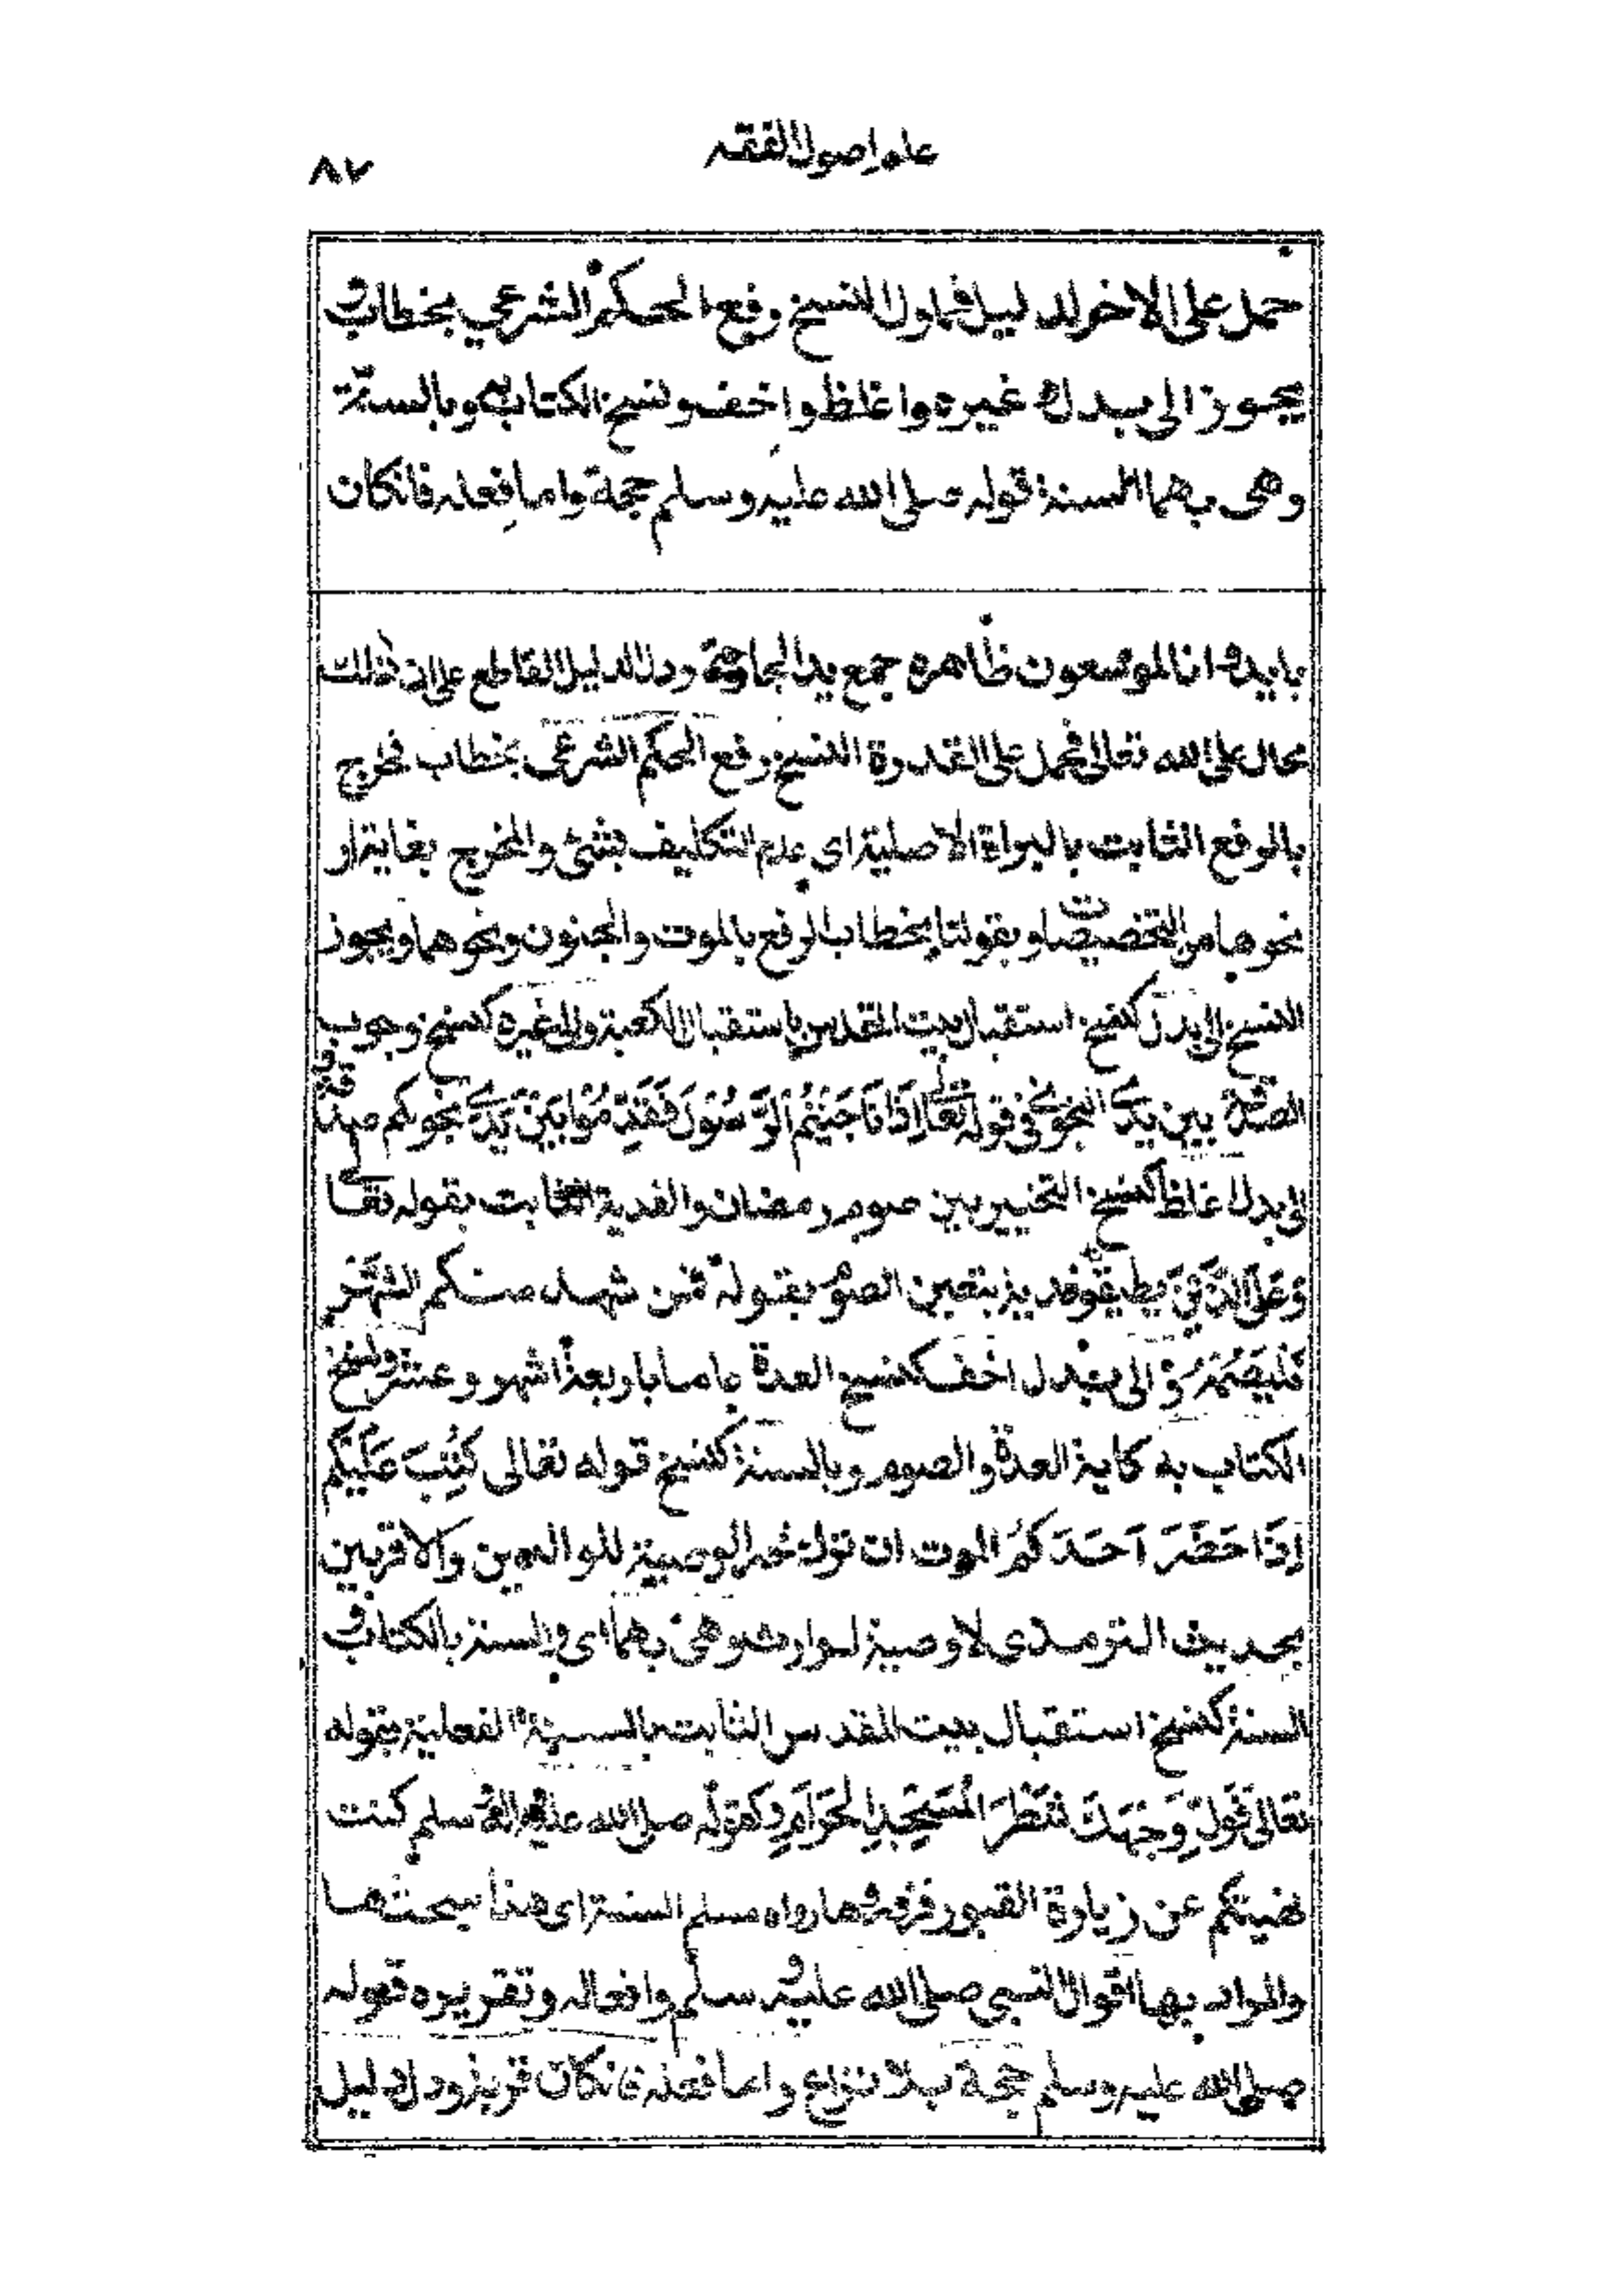 علم اصول الفقه
٨٧
حمل على الاخر لدليل فماول النسخ رفع الحكم الشرعي بخطاب و
يجوز الى بدل و غيره واغلظ واخف ونسخ الكتاب به وبالسنة
وهى بهما السنة قوله صلى الله عليه وسلم حجة واما فعله فانكان
بايد وانا لموسعون ظاهره جمع يد الجارحة ودل الدليل القاطع على ان ذلك
محال على الله تعالى فحمل على القدرة النسخ رفع الحكم الشرعى بخطاب فخرج
بالرفع الثابت بالبراءة الاصلية اى عدم التكليف بشئ والمخرج بغاية او
نحوها من التخصيصات وبقولنا بخطاب الرفع بالموت والجنون ونحوهما ويجوز
النسخ الى بدل كنسخ استقبال بيت المقدس باستقبال الكعبة والى غيره كنسخ وجوب
الصدقة بين يدى النجوى فى قوله تعالى اِذَا نَاجَيْتُمُ الرَّسُوْلَ فَقَدِّمُوْا بَيْنَ يَدَىْ نجوىكم صدقة و
الى بدل اغلظ كنسخ التخيير بين صوم رمضان والفدية الثابت بقوله تعالى
وَعَلَى الَّذِيْنَ يطيقونه فدية بتعين الصوم بقوله فمن شهد منكم الشَّهْرَ
فَلْيَصُمْهُ والى بدل اخف كنسخ العدة عاما باربعة اشهر وعشر ونسخ
الكتاب به كاية العدة والصوم وبالسنة كنسخ قوله تعالى كُتِبَ عَلَيْكُمْ
اِذَا حَضَرَ اَحَدَكُمُ الموت ان ترك خيرا الوصية للوالدين والاقربين
بحديث الترمذى لا وصية لوارث وهى بهما اى والسنة بالكتاب و
السنة كنسخ استقبال بيت المقدس الثابت بالسنة الفعلية بقوله
تعالى فَوَلِّ وَجْهَكَ شَطْرَ الْمَسْجِدِ الْحَرَامِ وكقوله صلى الله عليه واله وسلم كنت
نهيتكم عن زيارة القبور فزوروها رواه مسلم السنة اى هذا مبحثها
والمراد بها اقوال النبى صلى الله عليه وسلم وافعاله وتقريره قوله
صلى الله عليه وسلم حجة بلا نزاع واما فعله فانكان قربة ودل دليل